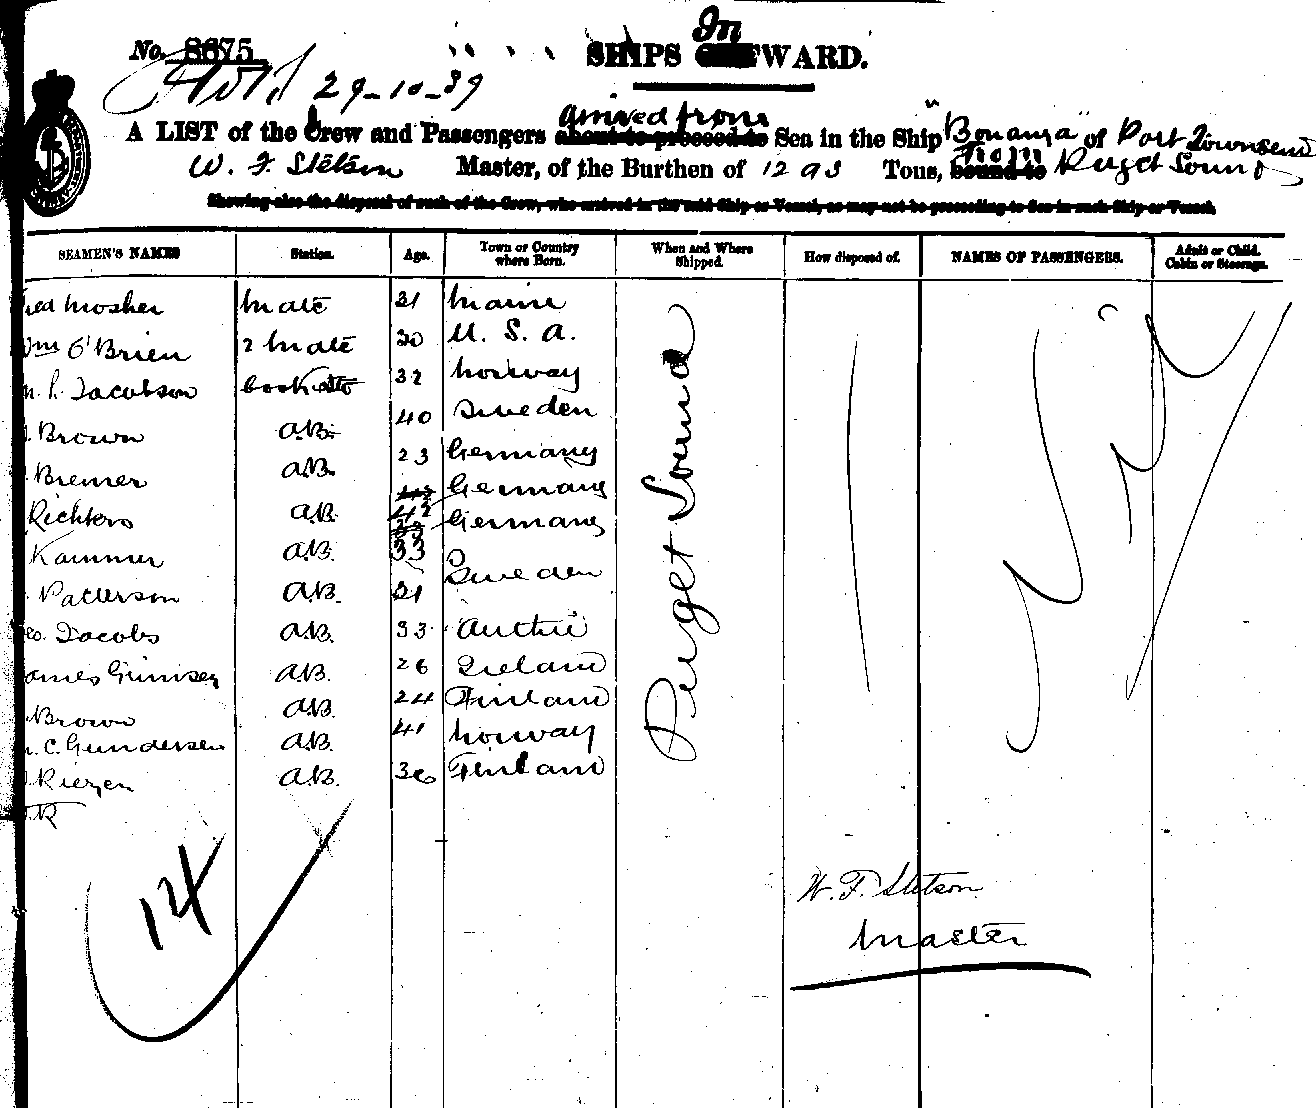 In
No. 8675 SHIPS WARD.
29-10-89
arrived from
A LIST of the Crew and Passengers about to proceed to Sea in the Ship "Bonanza" of Port Townsend
from
W. F. Stetson Master, of the Burthen of 1293 Tons, bound to Puget Sound
Showing also the disposal of such of the Crew, who arrived in the said Ship or Vessel, as may not be proceeding to Sea in such Ship or Vessel.
SEAMEN'S NAMES Station. Age. Town or Country where Born. When and Where Shipped. How disposed of. NAMES OF PASSENGERS. Adult or Child. Cabin or Steerage.
red Mosher Mate 31 Maine
Wm O'Brien 2 Mate 30 U. S. A.
P. Jacobson 32 Norway
Brown A.B. 40 Sweden
Bremer A.B. 23 Germany
Richters A.B. 42 Germany
Kammer A.B. 33 Germany
Patterson A.B. 21 Sweden
Jacobs A.B. 33
ames Grimsey A.B. 26 Ireland
Brown A.B. 24 Finland
C. Gundersen A.B. 41 Norway
A.B. 36 Finland
Puget Sound
Nil
14
W. F. Stetson
Master